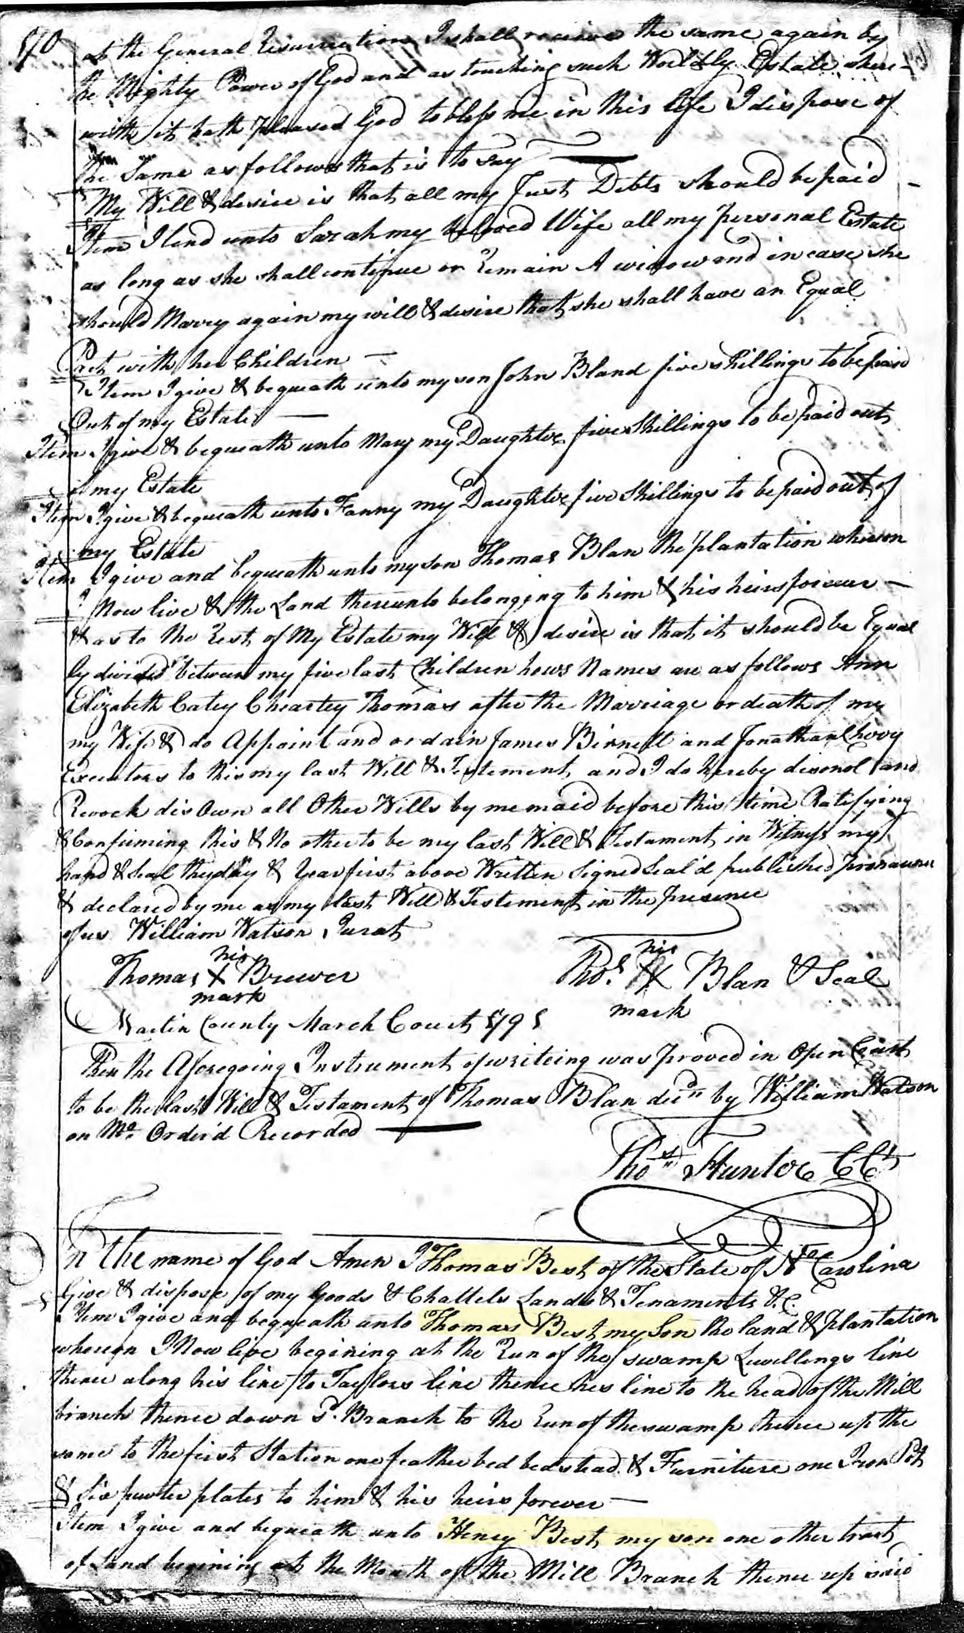 at the General Resurrection I shall receive the same again by
the Mighty Power of God and as touching such Worldly Estate where-
with it hath pleased God to bless me in this life I dispose of
the Same as follows that is to say
My Will & desire is that all my Just Debts should be paid
Item I lend unto Sarah my Beloved Wife all my personal Estate
as long as she shall continue or Remain A widow and in case she
should Marry again my will & desire that she shall have an Equal
Part with her Children
Item I give & bequeath unto my son John Bland five shillings to be paid
Out of my Estate
Item I give & bequeath unto Mary my Daughter five Shillings to be paid out
of my Estate
Item I give & bequeath unto Fanny my Daughter five Shillings to be paid out of
my Estate
Item I give and bequeath unto my son Thomas Blan the plantation whereon
I Now live & the Land thereunto belonging to him & his heirs forever
& as to the Rest of My Estate my Will & desire is that it should be Equal
ly divided between my five last Children hows Names are as follows Ann
Elizabeth Catey Cheartey Thomas after the Marriage or death of my
my Wife & do Appoint and ordain James Birnell and Jonathan
Executors to this my last Will & Testement and I do hereby and
Revock dis Own all Other Wills by me maid before this time Ratifying
& Confirming this & No other to be my last Will & Testament in Witness my
hand & Seal the day & Year first above Written Signed Seal'd published pronounc
& declared by me as my last Will & Testement in the presence
of us William Watson Jurat
Thomas his X Brewer
mark
Thos. his X Blan & Seal
mark
Martin County March Court 1791
Then the Aforegoing Instrument of writeing was proved in Open Court
to be the last Will & Testament of Thomas Blan decd by William Watson
on Mo. Order'd Recorded
Thos. Hunter CCt
In the name of God Amen I Thomas Best of the State of N Carolina
Give & dispose of my Goods & Chattels Lands & Tenaments &C
Item I give and bequeath unto Thomas Best my Son the land & plantation
whereon I Now live begining at the Run of the swamp Lewellings line
thence along his line to Taylors line thence his line to the head of the Mill
branch thence down sd. Branch to the Run of the swamp thence up the
same to the first Station one feather bed bedstead & Furniture one Iron Pot
& Six pewter plates to him & his heirs forever
Item I give and bequeath unto Henry Best my son one other tract
of land begining at the Mouth of the Mill Branch thence up said